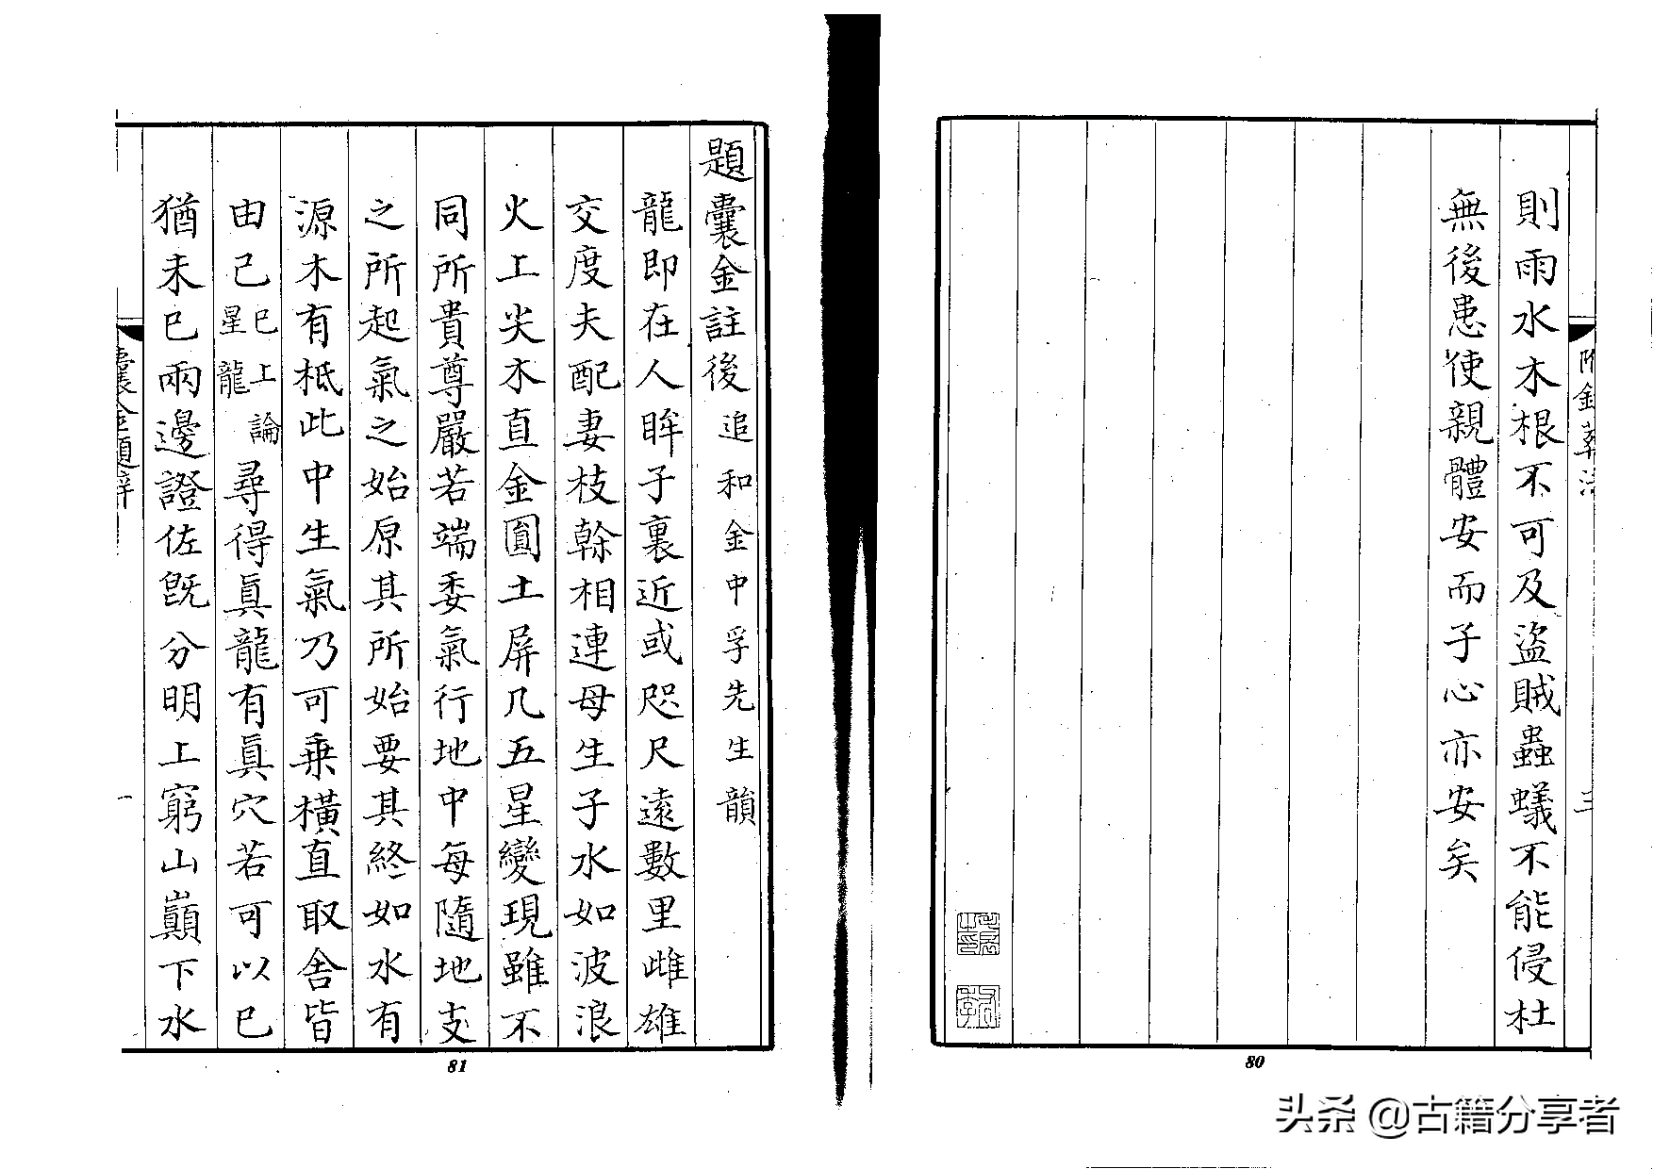 則雨水木根不可及盜賊蟲蟻不能侵杜
無後患使親體安而子心亦安矣
附錄葬法
三
80
題囊金註後追和金中孚先生韻
龍即在人眸子裏近或咫尺遠數里雌雄
交度夫配妻枝幹相連母生子水如波浪
火工尖木直金圓土屏几五星變現雖不
同所貴尊嚴若端委氣行地中每隨地支
之所起氣之始原其所始要其終如水有
源木有柢此中生氣乃可乗橫直取舍皆
由己巳上論星龍尋得眞龍有眞穴若可以巳
猶未巳兩邊證佐既分明上窮山巔下水
囊金題辭
一
81
头条 @古籍分享者